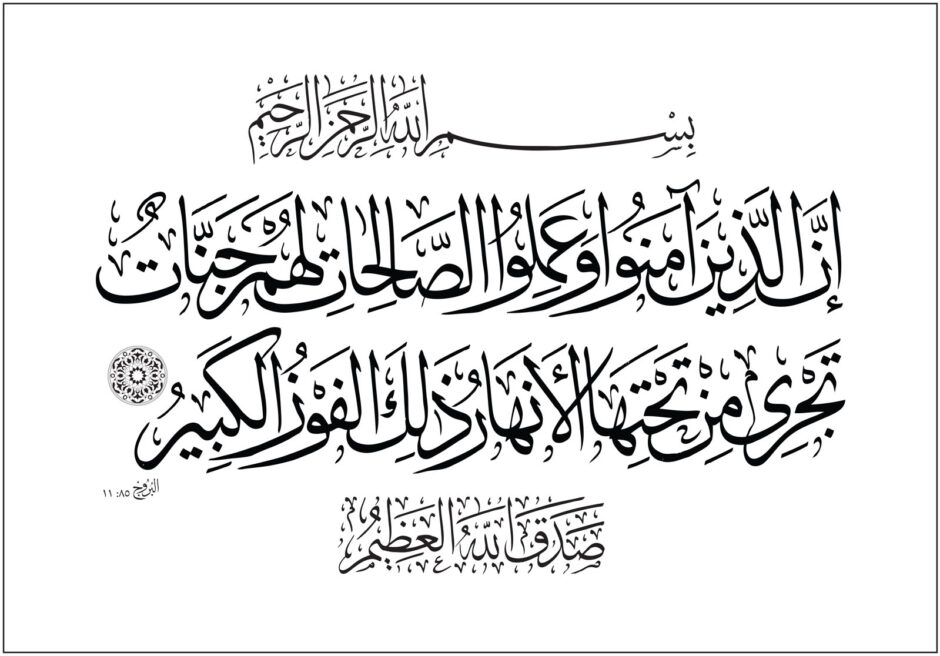 بِسْمِ اللهِ الرَّحْمٰنِ الرَّحِيْمِ
إِنَّ الَّذِينَ آمَنُوا وَعَمِلُوا الصَّالِحَاتِ لَهُمْ جَنَّاتٌ
تَجْرِي مِنْ تَحْتِهَا الْأَنْهَارُ ذَلِكَ الْفَوْزُ الْكَبِيرُ
البُرُوج ٨٥: ١١
صَدَقَ اللهُ الْعَظِيمُ